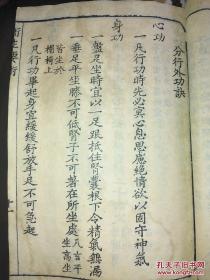 分行外功訣
心功
一凡行功時先必冥心息思慮絕情欲以固守神氣
身功
一盤足坐時宜以一足跟抵住腎囊根下令精氣無漏
一垂足平坐膝不可低腎子不可著在所坐處凡言平坐高坐
皆坐於
榻椅上
一凡行功畢起身宜緩緩舒放手足不可急起
衛生要術